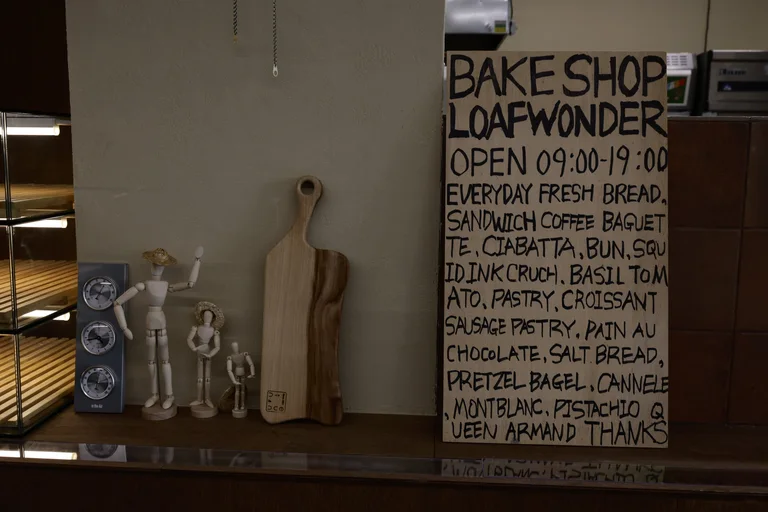 BAKE SHOP
LOAFWONDER
OPEN 09:00-19:00
EVERYDAY FRESH BREAD,
SANDWICH COFFEE BAGUET
TE, CIABATTA, BUN, SQU
ID INK CRUCH, BASIL TOM
ATO, PASTRY, CROISSANT
SAUSAGE PASTRY, PAIN AU
CHOCOLATE, SALT BREAD,
PRETZEL BAGEL, CANNELE
, MONTBLANC, PISTACHIO Q
UEEN ARMAND THANKS